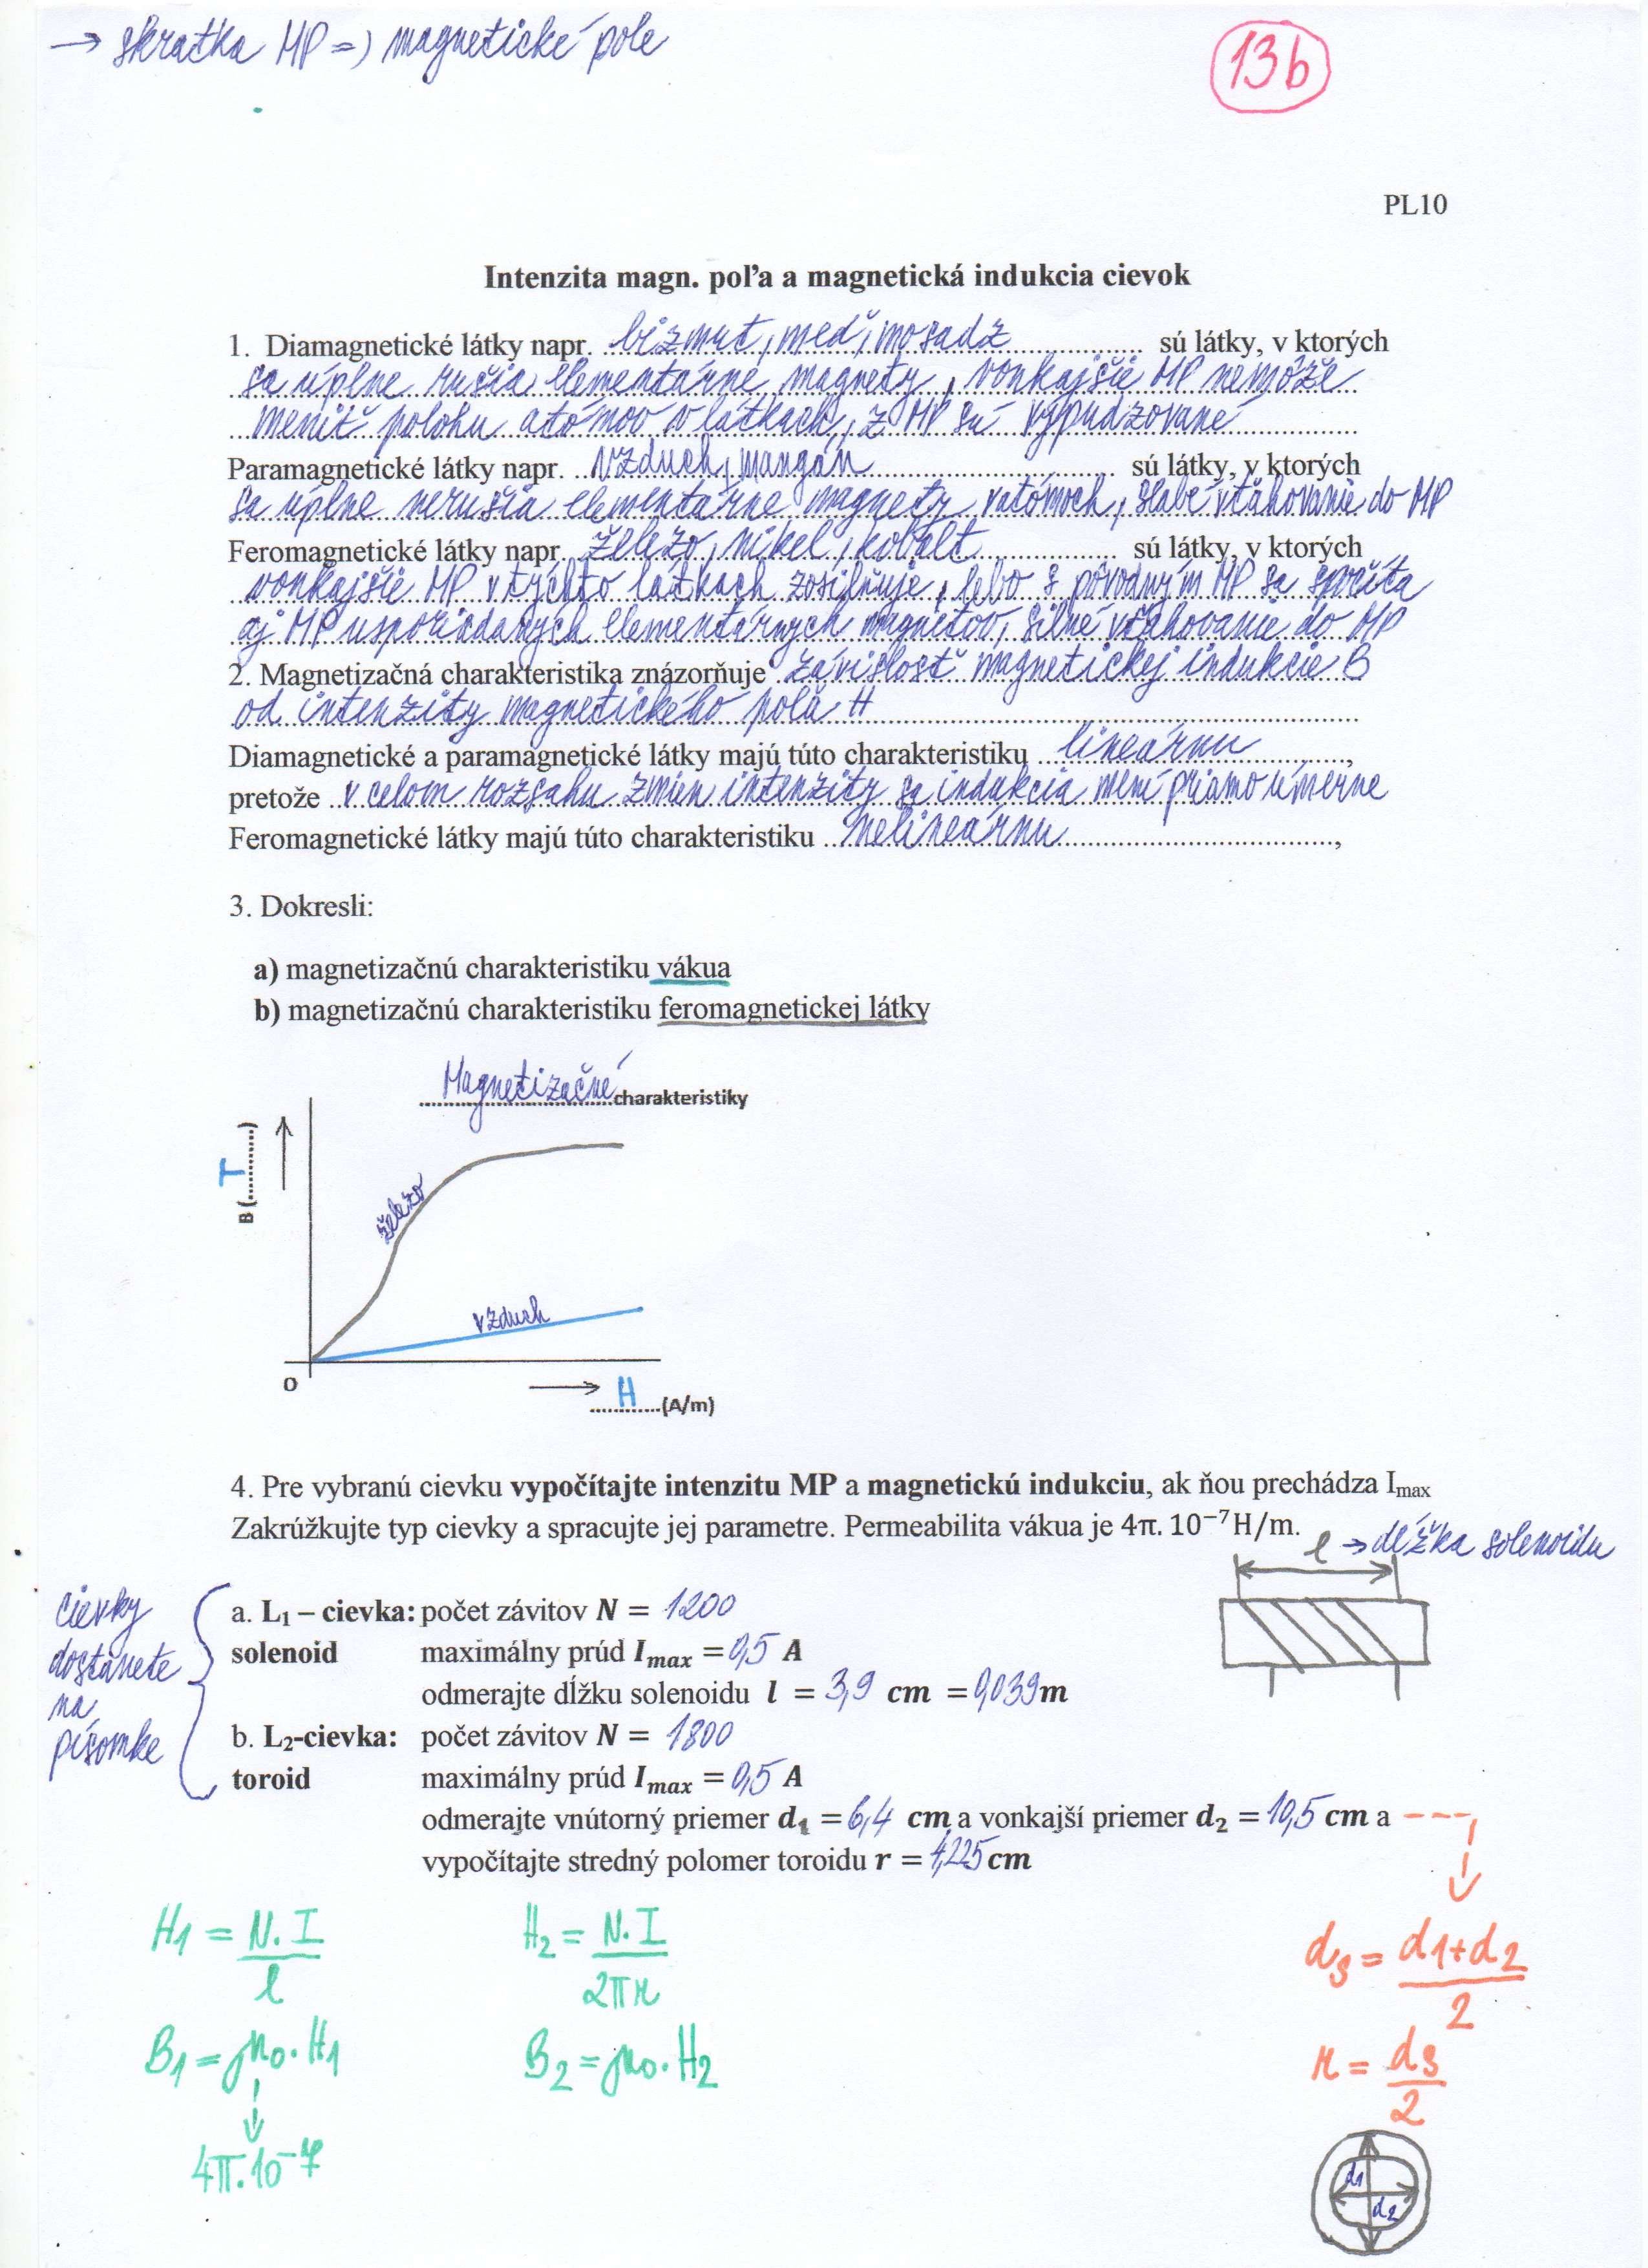 → skratka MP =) magnetické pole
13b
PL10
Intenzita magn. poľa a magnetická indukcia cievok
1. Diamagnetické látky napr. bizmut, meď, mosadz sú látky, v ktorých
sa úplne rušia elementárne magnety, vonkajšie MP nemôže
meniť polohu atómov v látkach, z MP sú vypudzované
Paramagnetické látky napr. vzduch, mangán sú látky, v ktorých
sa úplne nerušia elementárne magnety vatómoch, slabé vťahovanie do MP
Feromagnetické látky napr. železo, nikel, kobalt sú látky, v ktorých
vonkajšie MP v týchto látkach zosilňuje, lebo s pôvodným MP sa spočíta
aj MP usporiadaných elementárnych magnetov, silné vťahovanie do MP
2. Magnetizačná charakteristika znázorňuje závislosť magnetickej indukcie B
od intenzity magnetického poľa H
Diamagnetické a paramagnetické látky majú túto charakteristiku lineárnu,
pretože v celom rozsahu zmien intenzity sa indukcia mení priamo úmerne
Feromagnetické látky majú túto charakteristiku nelineárnu,
3. Dokresli:
a) magnetizačnú charakteristiku vákua
b) magnetizačnú charakteristiku feromagnetickej látky
Magnetizačné charakteristiky
B (T)
železo
vzduch
0
H (A/m)
4. Pre vybranú cievku vypočítajte intenzitu MP a magnetickú indukciu, ak ňou prechádza Imax
Zakrúžkujte typ cievky a spracujte jej parametre. Permeabilita vákua je 4π. 10⁻⁷H/m.
l → dĺžka solenoidu
cievky
dostanete
na
písomke
a. L₁ – cievka: počet závitov N = 1200
solenoid maximálny prúd Imax = 0,5 A
odmerajte dĺžku solenoidu l = 3,9 cm = 0,039 m
b. L₂-cievka: počet závitov N = 1800
toroid maximálny prúd Imax = 0,5 A
odmerajte vnútorný priemer d₁ = 6,4 cm a vonkajší priemer d₂ = 10,5 cm a
vypočítajte stredný polomer toroidu r = 4,225 cm
H₁ = N.I / l
H₂ = N.I / 2πr
ds = d1+d2 / 2
B₁ = μ₀.H₁
B₂ = μ₀.H₂
r = ds / 2
4π.10⁻⁷
d1
d2